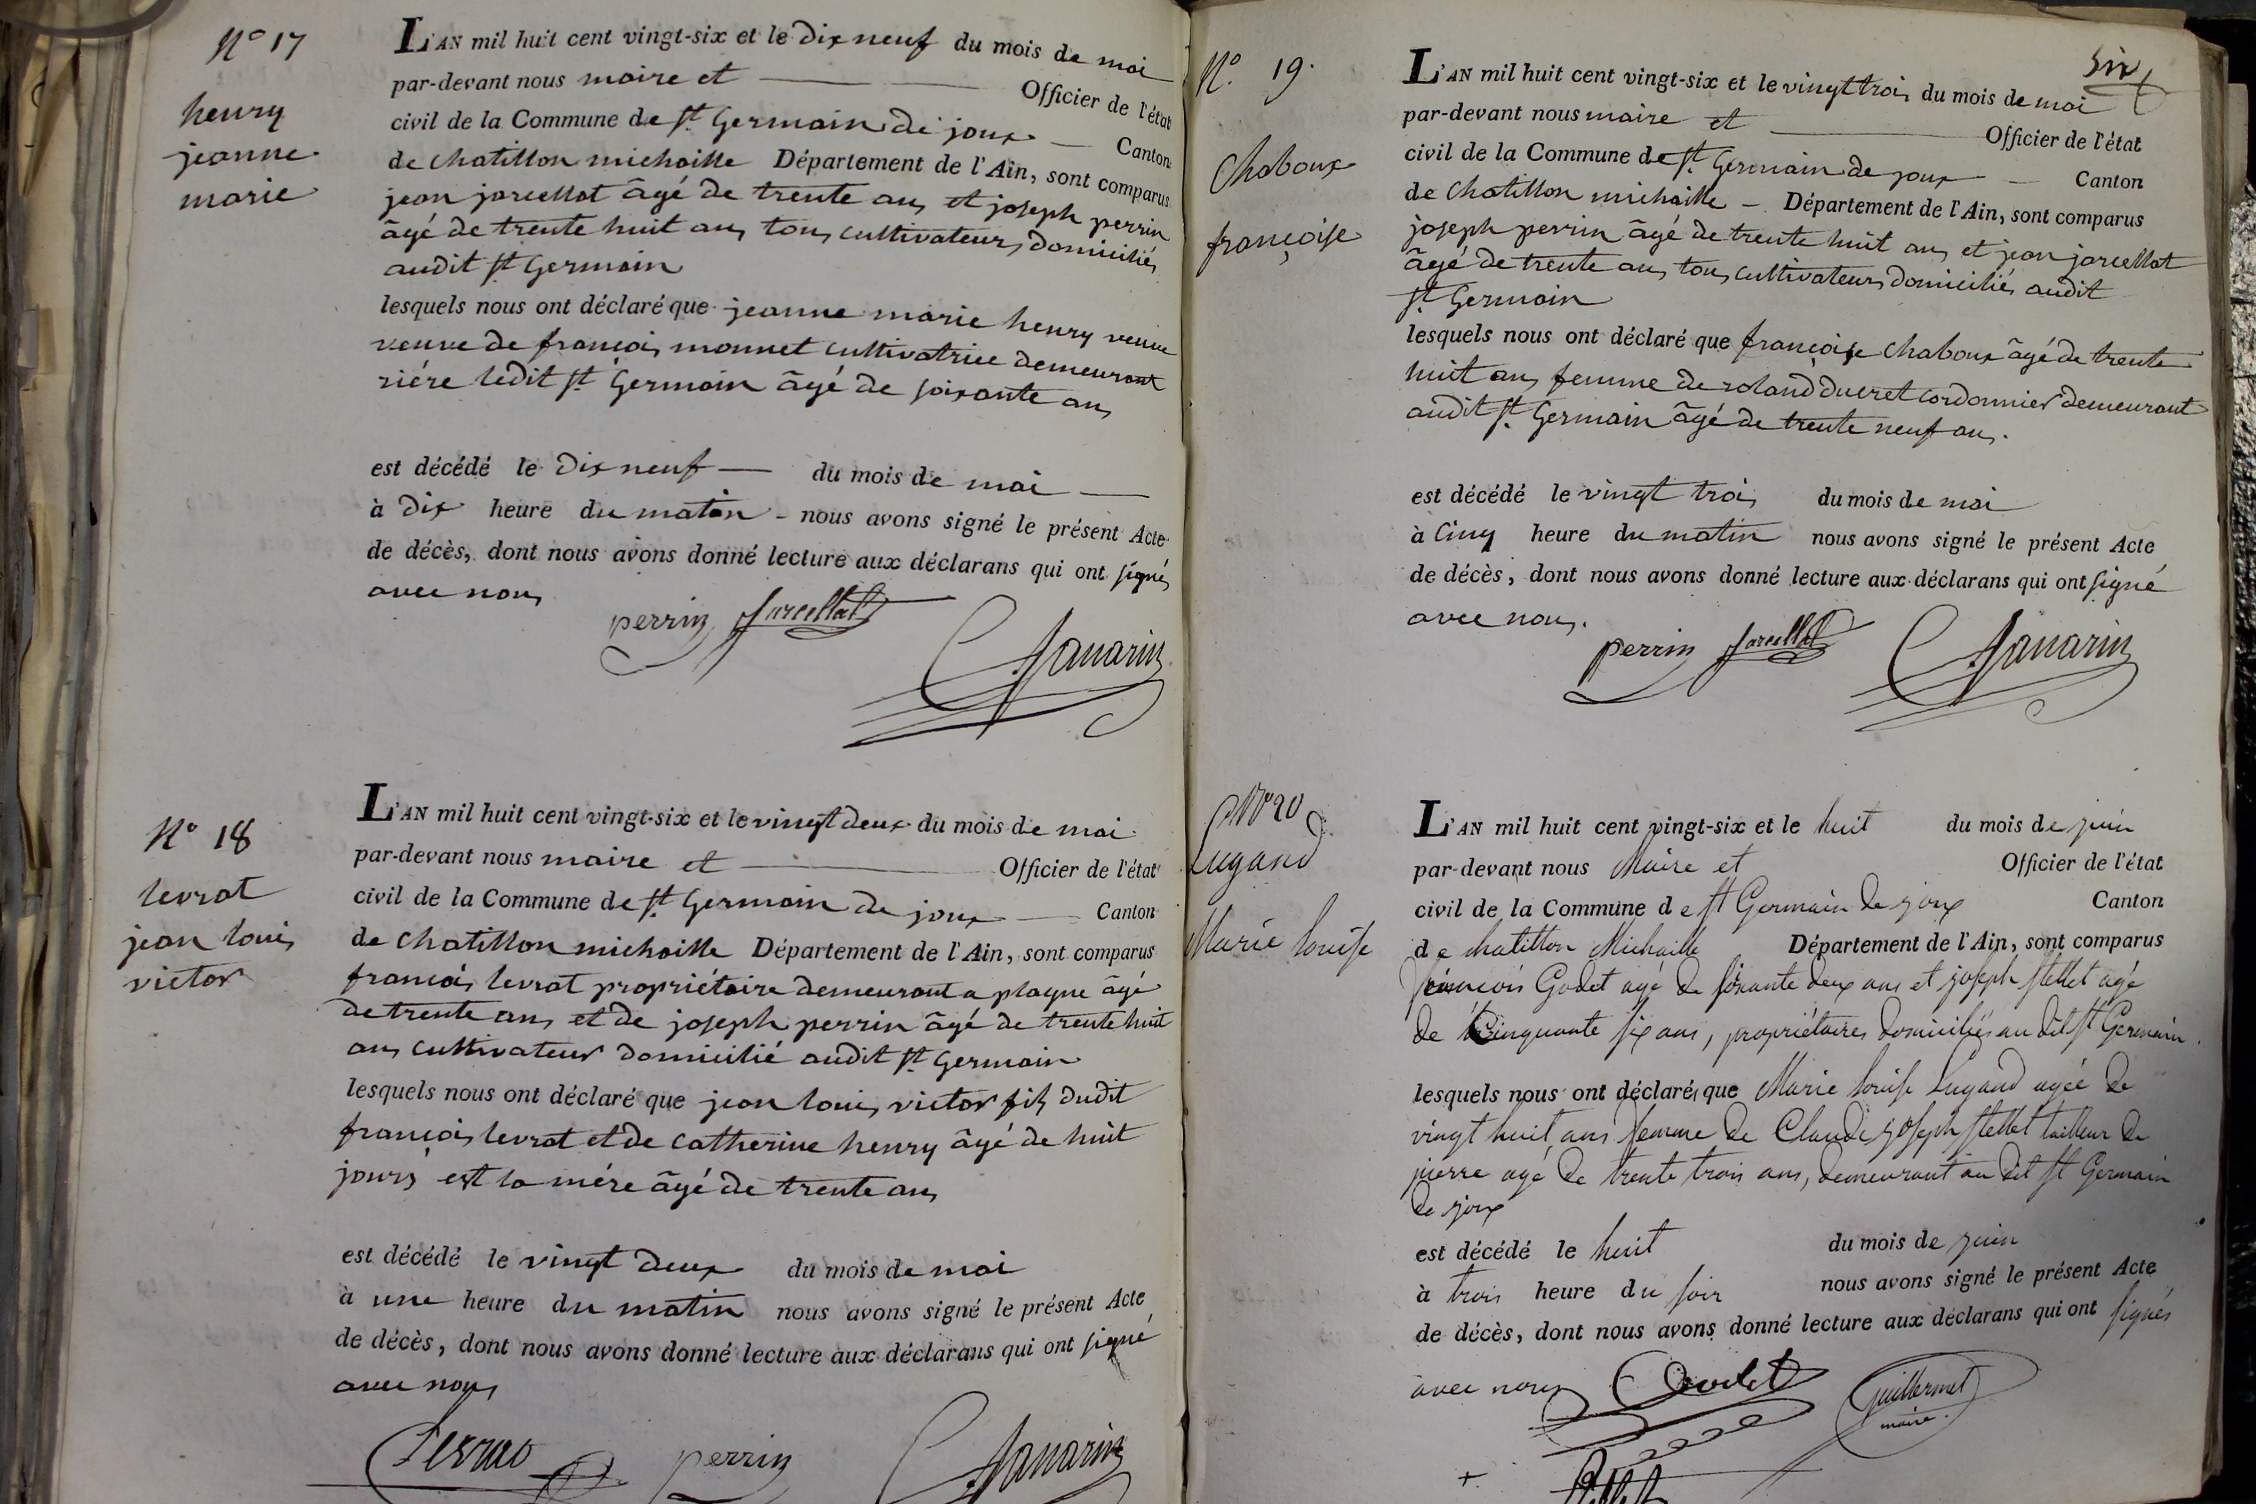 N° 17
henry
jeanne
marie
L'AN mil huit cent vingt-six et le dix neuf du mois de mai
par-devant nous maire et Officier de l'état
civil de la Commune de st Germain de joux Canton
de chatillon michaille Département de l'Ain, sont comparus
jean jarcellat âgé de trente ans et joseph perrin
âgé de trente huit ans tous cultivateurs domiciliés
audit st Germain
lesquels nous ont déclaré que jeanne marie henry veuve
veuve de françois monnet cultivatrice demeurant
riére ledit st Germain âgé de soixante ans
est décédé le dix neuf du mois de mai
à dix heure du matin - nous avons signé le présent Acte
de décès, dont nous avons donné lecture aux déclarans qui ont signés
avec nous
perrin Jarcellat
N° 18
levrat
jean louis
victor
L'AN mil huit cent vingt-six et le vingt deux du mois de mai
par-devant nous maire et Officier de l'état
civil de la Commune de st Germain de joux Canton
de chatillon michaille Département de l'Ain, sont comparus
françois levrat propriétaire demeurant a plagne âgé
de trente ans et de joseph perrin âgé de trente huit
ans cultivateur domicilié audit st Germain
lesquels nous ont déclaré que jean louis victor fils dudit
françois levrat et de catherine henry âgé de huit
jours est la mére âgé de trente ans
est décédé le vingt deux du mois de mai
à une heure du matin nous avons signé le présent Acte
de décès, dont nous avons donné lecture aux déclarans qui ont signé
avec nous
perrin
six
N° 19.
Chaboux
françoise
L'AN mil huit cent vingt-six et le vingt trois du mois de mai
par-devant nous maire et Officier de l'état
civil de la Commune de st Germain de joux Canton
de chatillon michaille - Département de l'Ain, sont comparus
joseph perrin âgé de trente huit ans et jean jarcellat
âgé de trente ans tous cultivateurs domiciliés audit
st Germain
lesquels nous ont déclaré que françoise chaboux âgé de trente
huit ans femme de roland ducret cordonnier demeurant
audit st Germain âgé de trente neuf ans.
est décédé le vingt trois du mois de mai
à cinq heure du matin nous avons signé le présent Acte
de décès, dont nous avons donné lecture aux déclarans qui ont signé
avec nous.
perrin Jarcellat
N° 20
Lugand
Marie Louise
L'AN mil huit cent vingt-six et le huit du mois de juin
par-devant nous Maire et Officier de l'état
civil de la Commune de st Germain de joux Canton
de chatillon Michaille Département de l'Ain, sont comparus
françois Godet agé de soixante deux ans et joseph stellet agé
de cinquante six ans, propriétaires domiciliés au dit st Germain.
lesquels nous ont déclaré que Marie Louise Lugand agée de
vingt huit ans femme de Claude joseph stellet tailleur de
pierre agé de trente trois ans, demeurant au dit st Germain
de joux
est décédé le huit du mois de juin
à trois heure du soir nous avons signé le présent Acte
de décès, dont nous avons donné lecture aux déclarans qui ont signés
avec nous Godet Guillermet
maire.